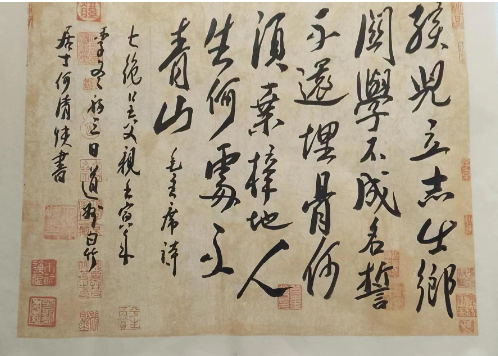 孩兒立志出鄉
關學不成名誓
不還埋骨何
須桑梓地人
生何處不
青山 毛主席詩
七絕呈父親壬寅年
季冬初三日道州白竹
居士何清俠書